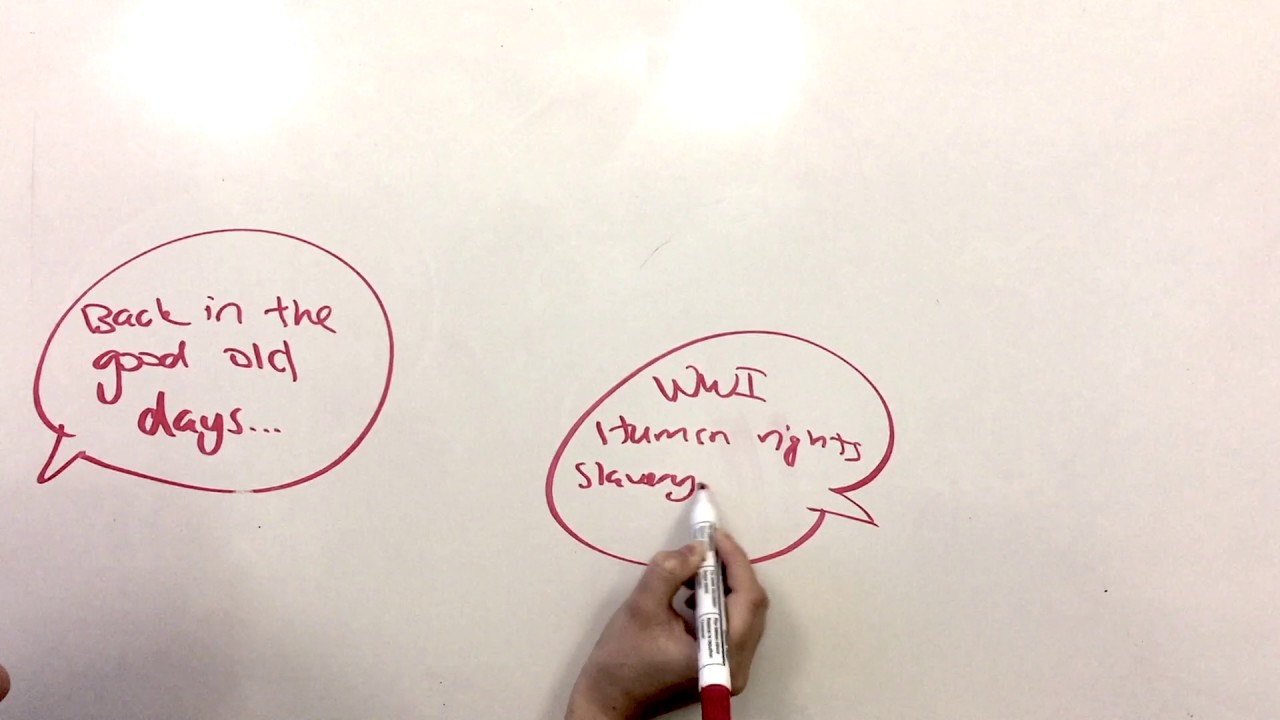 Back in the
good old
days...
WWI
Human rights
Slavery